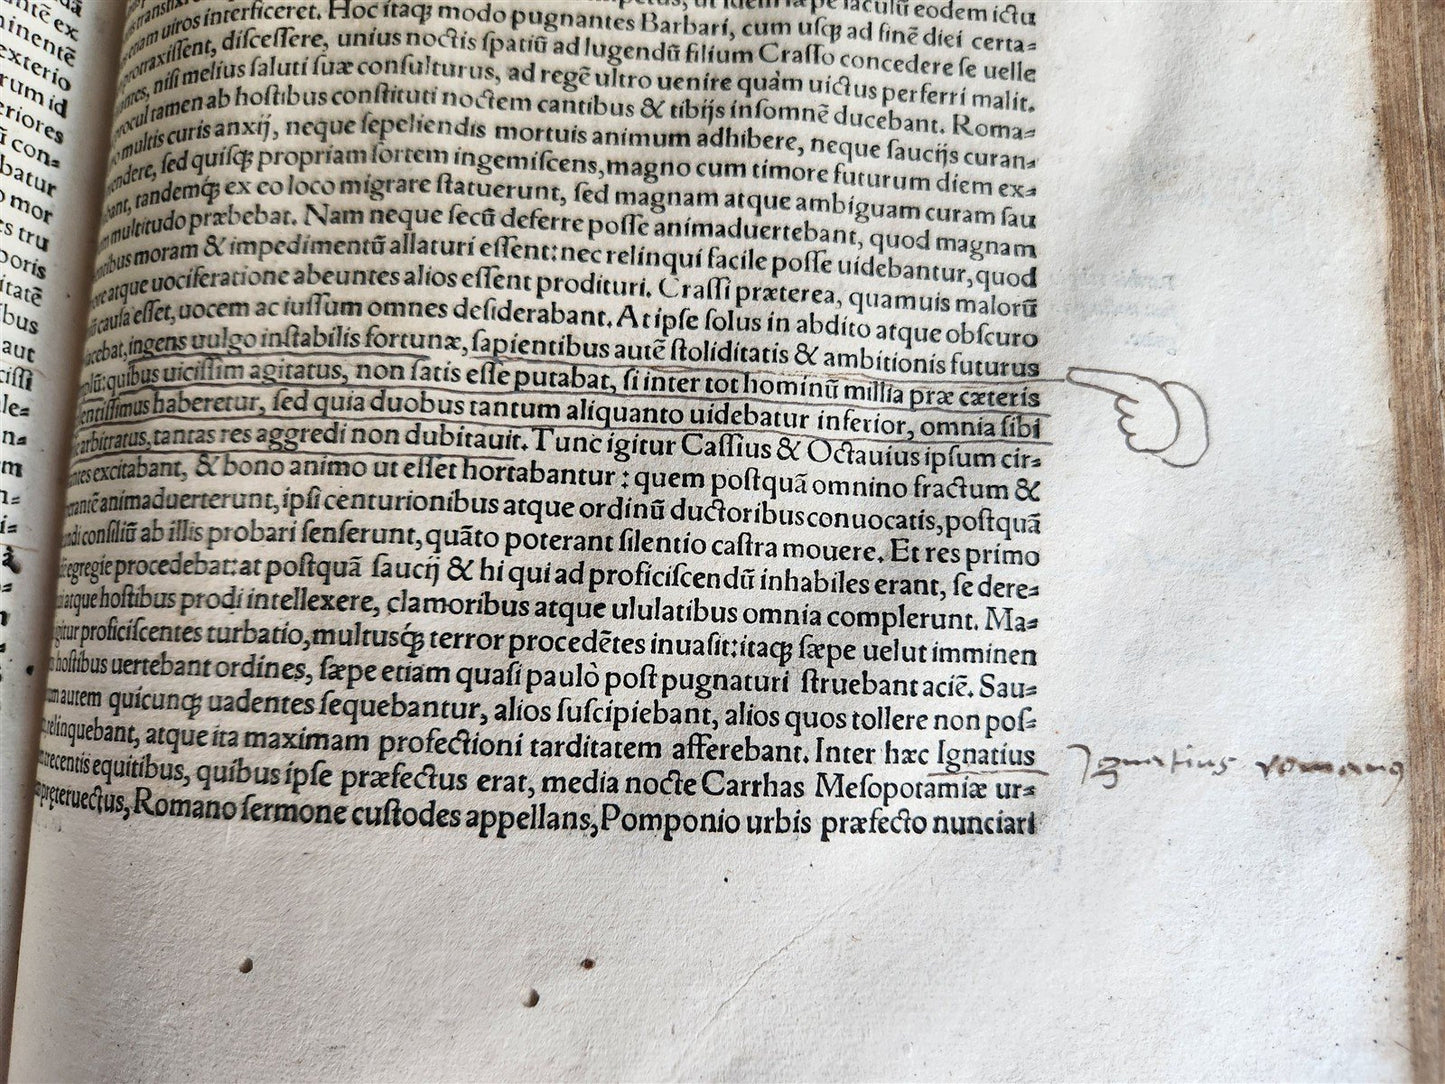 ntē ex
minentē
exterio
rum id
eriores
ū con⸗
batur
o mor
es tru
poris
itatē
ibus
aut
ciſſi
le⸗
n⸗
m
n⸗
i⸗
ut idem ſæpe iaculū eodem ictu
etiam uiros interficeret. Hoc itaq; modo pugnantes Barbari, cum uſq; ad finē diei certa⸗
protraxiſſent, diſceſſere, unius noctis ſpatiū ad lugendū filium Craſſo concedere ſe uelle
antes, niſi melius ſaluti ſuæ conſulturus, ad regē ultro uenire quàm uictus perferri malit.
procul tamen ab hoſtibus conſtituti noctem cantibus & tibijs inſomnē ducebant. Roma⸗
multis curis anxij, neque ſepeliendis mortuis animum adhibere, neque ſaucijs curan⸗
endere, ſed quiſq; propriam ſortem ingemiſcens, magno cum timore futurum diem ex⸗
bant, tandemq́; ex eo loco migrare ſtatuerunt, ſed magnam atque ambiguam curam ſau
multitudo præbebat. Nam neque ſecū deferre poſſe animaduertebant, quod magnam
ntibus moram & impedimentū allaturi eſſent: nec relinqui facile poſſe uidebantur, quod
ore atque uociferatione abeuntes alios eſſent prodituri. Craſſi præterea, quamuis malorū
cauſa eſſet, uocem ac iuſſum omnes deſiderabant. At ipſe ſolus in abdito atque obſcuro
iacebat, ingens uulgo inſtabilis fortunæ, ſapientibus autē ſtoliditatis & ambitionis futurus
plū: quibus uiciſſim agitatus, non ſatis eſſe putabat, ſi inter tot hominū millia præ cæteris
lentiſſimus haberetur, ſed quia duobus tantum aliquanto uidebatur inferior, omnia ſibi
arbitratus, tantas res aggredi non dubitauit. Tunc igitur Caſſius & Octauius ipſum cir⸗
ntes excitabant, & bono animo ut eſſet hortabantur: quem poſtquā omnino fractum &
animaduerterunt, ipſi centurionibus atque ordinū ductoribus conuocatis, poſtquā
ndi conſiliū ab illis probari ſenſerunt, quāto poterant ſilentio caſtra mouere. Et res primo
egregie procedebat: at poſtquā ſaucij & hi qui ad proficiſcendū inhabiles erant, ſe dere⸗
atque hoſtibus prodi intellexere, clamoribus atque ululatibus omnia complerunt. Ma⸗
igitur proficiſcentes turbatio, multusq́; terror procedētes inuaſit: itaq; ſæpe uelut imminen
hoſtibus uertebant ordines, ſæpe etiam quaſi paulò poſt pugnaturi ſtruebant aciē. Sau⸗
autem quicunq; uadentes ſequebantur, alios ſuſcipiebant, alios quos tollere non poſ⸗
relinquebant, atque ita maximam profectioni tarditatem afferebant. Inter hæc Ignatius
trecentis equitibus, quibus ipſe præfectus erat, media nocte Carrhas Meſopotamiæ ur⸗
præteruectus, Romano ſermone cuſtodes appellans, Pomponio urbis præfecto nunciari
Ignatius romanus